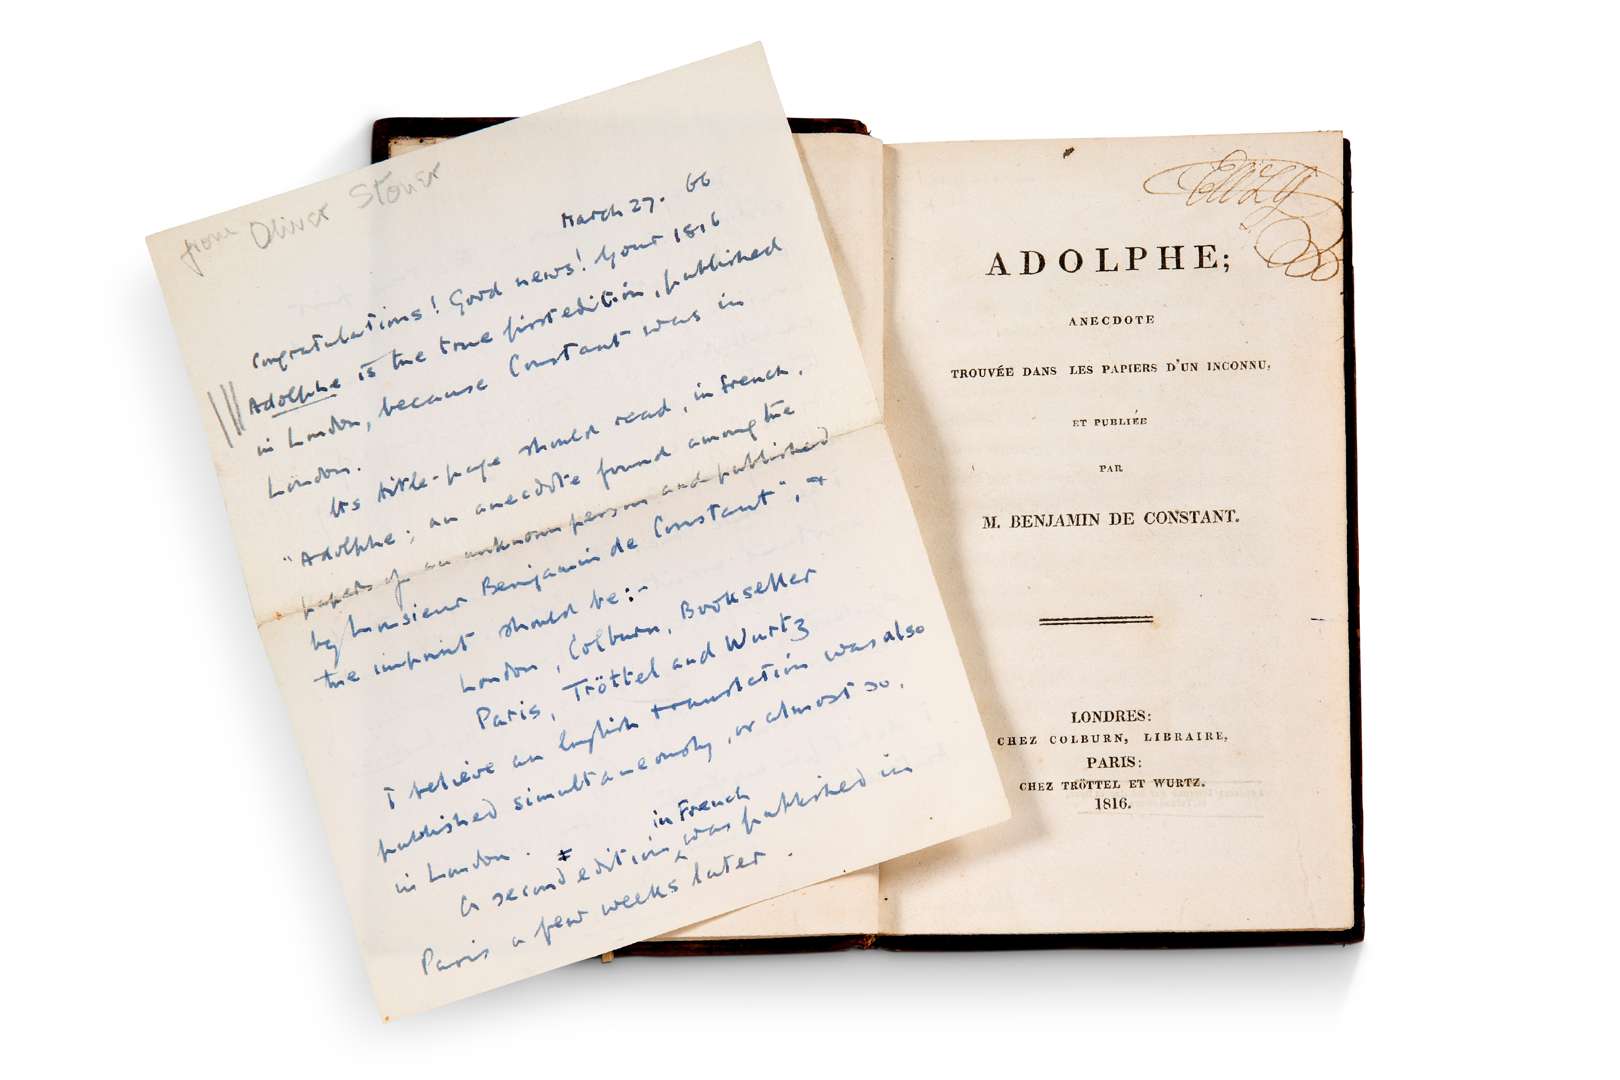 from Oliver Stoner
March 27. 66
Congratulations! Good news! Your 1816
Adolphe is the true first edition, published
in London, because Constant was in
London.
Its title-page should read, in French,
"Adolphe; an anecdote found among the
papers of an unknown person and published
by Monsieur Benjamin de Constant", &
the imprint should be:-
London, Colburn, Bookseller
Paris, Tröttel and Wurtz
I believe an English translation was also
published simultaneously, or almost so,
in London.
in French
A second edition was published in
Paris a few weeks later.
ADOLPHE;
ANECDOTE
TROUVÉE DANS LES PAPIERS D'UN INCONNU,
ET PUBLIÉE
PAR
M. BENJAMIN DE CONSTANT.
LONDRES:
CHEZ COLBURN, LIBRAIRE,
PARIS:
CHEZ TRÖTTEL ET WURTZ.
1816.